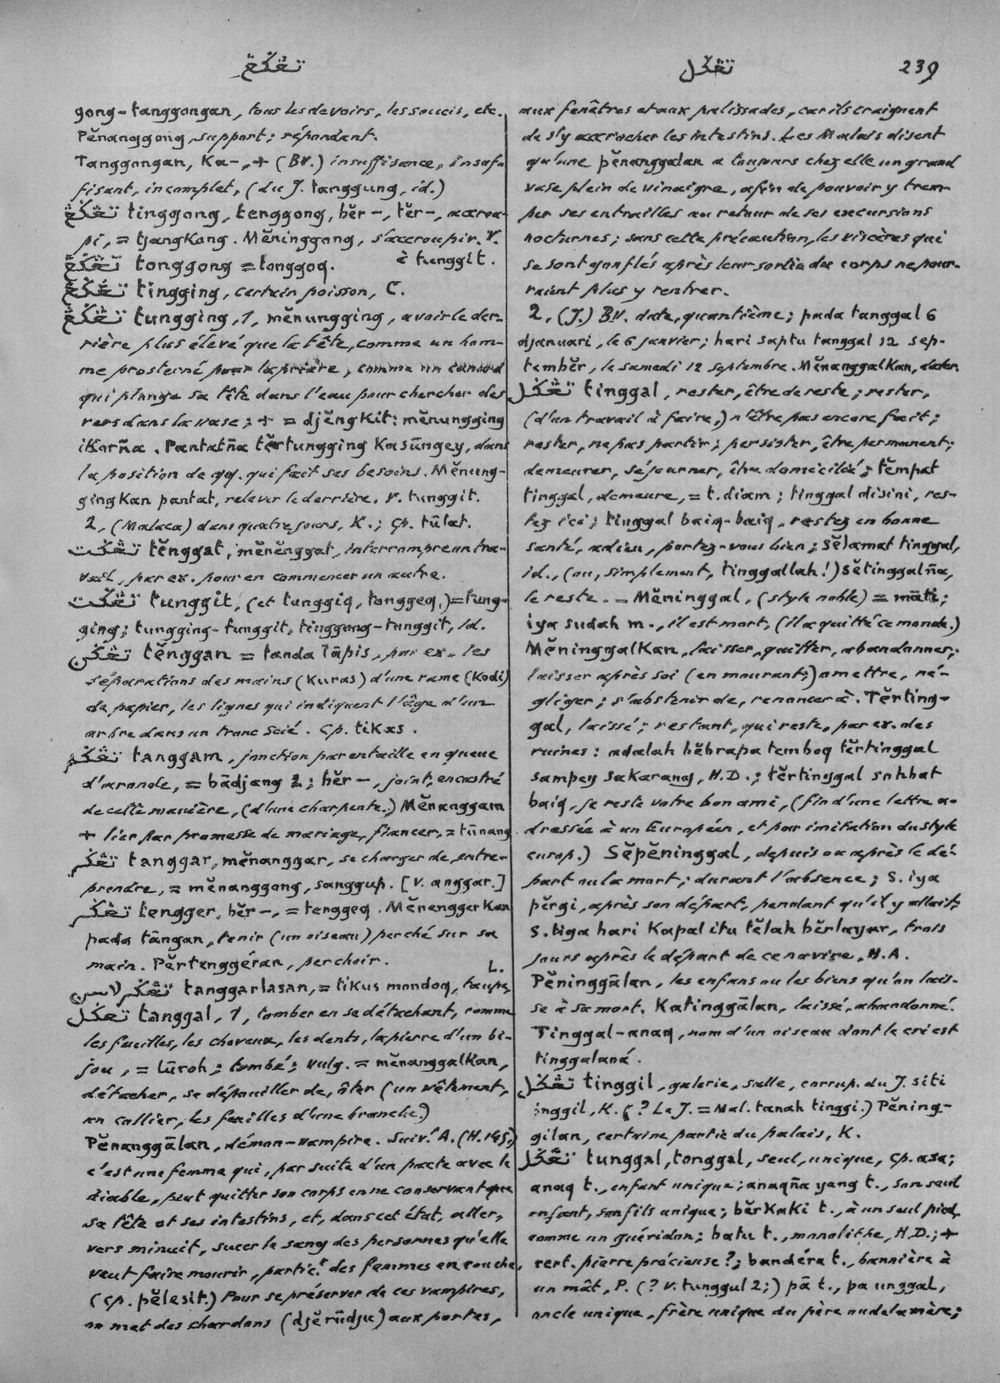 تڠݢڠ
تڠݢل
239
gong-tanggongan, tous les devoirs, les soucis, etc.
Pĕnanggong, support; répondant.
Tanggongan, Ka-, + (BV.) insuffisance, insuf-
fisant, incomplet, (du J. tanggung, id.)
تڠݢڠ tinggong, tenggong, bĕr-, tĕr-, accrou-
pi, = tjangKong. Mĕninggong, s'accroupir. V.
è tunggit.
تڠݢڠ tonggong = tonggoq.
تڠݢڠ tingging, certain poisson, C.
تڠݢڠ tungging, 1, mĕnungging, avoir le der-
rière plus élevé que la tête, comme un hom-
me prosterné pour la prière, comme un canard
qui plonge sa tête dans l'eau pour chercher des
vers dans la vase; + = djĕngKit: mĕnungging
iKorña. Pantatña tĕrtungging Kasūngey, dans
la position de qq. qui fait ses besoins. Mĕnung-
gingKan pantat, relever le derrière. V. tunggit.
2, (Malaca) dans quatre jours, K.; Cp. tūlat.
تڠݢت tĕnggat, mĕnĕnggat, interrompre un tra-
vail, par ex. pour en commencer un autre.
تڠݢت tunggit, (et tunggiq, tonggeq.) = tung-
ging; tungging-tunggit, tinggong-tunggit, id.
تڠݢن tĕnggan = tanda lāpis, par ex. les
séparations des mains (Kuras) d'une rame (Kodi)
de papier, les lignes qui indiquent l'âge d'un
arbre dans un tronc scié. Cp. tiKas.
تڠݢم tanggam, jonction par entaille en queue
d'aronde, = bādjang 2; bĕr-, joint, encastré
de cette manière, (d'une charpente.) Mĕnanggam
+ lier par promesse de mariage, fiancer, = tūnang.
تڠݢر tanggar, mĕnanggar, se charger de, entre-
prendre, = mĕnanggong, sanggup. [V. anggar.]
تڠݢر tengger, bĕr-, = tenggeq. MĕnenggerKan
pada tāngan, tenir (un oiseau) perché sur sa
main. Pĕrtenggéran, perchoir.
L.
تڠݢرلاسن tanggarlasan, = tiKus mondoq, taupe,
تڠݢل tanggal, 1, tomber en se détachant, comme
les feuilles, les cheveux, les dents, la pierre d'un bi-
jou, = lūroh; tombé; vulg. = mĕnanggalKan,
détacher, se dépouiller de, ôter (un vêtement,
un collier, les feuilles d'une branche.)
Pĕnanggālan, démon-vampire. Suiv.t A. (H. 195)
c'est une femme qui, par suite d'un pacte avec le
diable, peut quitter son corps en ne conservant que
sa tête et ses intestins, et, dans cet état, aller,
vers minuit, sucer le sang des personnes qu'elle
veut faire mourir, partic.t des femmes en couche,
(cp. pĕlesit.) Pour se préserver de ces vampires,
on met des chardons (djĕrūdju) aux portes,
aux fenêtres et aux palissades, car ils craignent
de s'y accrocher les intestins. Les Malais disent
qu'une pĕnanggalan a toujours chez elle un grand
vase plein de vinaigre, afin de pouvoir y trem-
per ses entrailles au retour de ses excursions
nocturnes; sans cette précaution, les viscères qui
se sont gonflés après leur sortie du corps ne pour-
raient plus y rentrer.
2, (J.) BV. date, quantième; pada tanggal 6
djanuari, le 6 janvier; hari saptu tanggal 12 sep-
tembĕr, le samedi 12 septembre. MĕnanggalKan, dater.
تڠݢل tinggal, rester, être de reste; rester,
(d'un travail à faire,) n'être pas encore fait;
rester, ne pas partir; persister, être permanent;
demeurer, séjourner, être domicilié; tĕmpat
tinggal, demeure, = t. diam; tinggal disini, res-
tez ici; tinggal baiq-baiq, restez en bonne
santé, adieu, portez-vous bien; Sĕlamat tinggal,
id., (ou, simplement, tinggallah!) Sĕtinggalña,
le reste. - Mĕninggal, (style noble) = māti;
iya sudah m., il est mort, (il a quitté ce monde.)
MĕninggalKan, laisser, quitter, abandonner;
laisser après soi (en mourant;) omettre, né-
gliger; s'abstenir de, renoncer à. Tĕrting-
gal, laissé; restant, qui reste, par ex. des
ruines: adalah bĕbrapa temboq tĕrtinggal
sampey saKarang, H.D.; tĕrtinggal sohbat
baiq, je reste votre bon ami, (fin d'une lettre a-
dressée à un Européen, et par imitation du style
europ.) Sĕpĕninggal, depuis ou après le dé-
part ou la mort; durant l'absence; S. iya
pĕrgi, après son départ, pendant qu'il y allait;
S. tiga hari Kapal itu tĕlah bĕrlayar, trois
jours après le départ de ce navire, H.A.
Pĕninggālan, les enfans ou les biens qu'on lais-
se à sa mort. Katinggālan, laissé, abandonné.
Tinggal-anaq, nom d'un oiseau dont le cri est
tinggalaná.
تڠݢل tinggil, galerie, salle, corrup. du J. siti
inggil, K. (? Le J. = Mal. tanah tinggi.) Pĕning-
gilan, certaine partie du palais, K.
تڠݢل tunggal, tonggal, seul, unique, Cp. asa;
anaq t., enfant unique; anaqña yang t., son seul
enfant, son fils unique; bĕrKaKi t., à un seul pied,
comme un guéridon; batu t., monolithe, H.D.; +
cert. pierre précieuse?; bandéra t., bannière à
un mât, P. (? V. tunggul 2;) pā t., pa unggal,
oncle unique, frère unique du père ou de la mère;